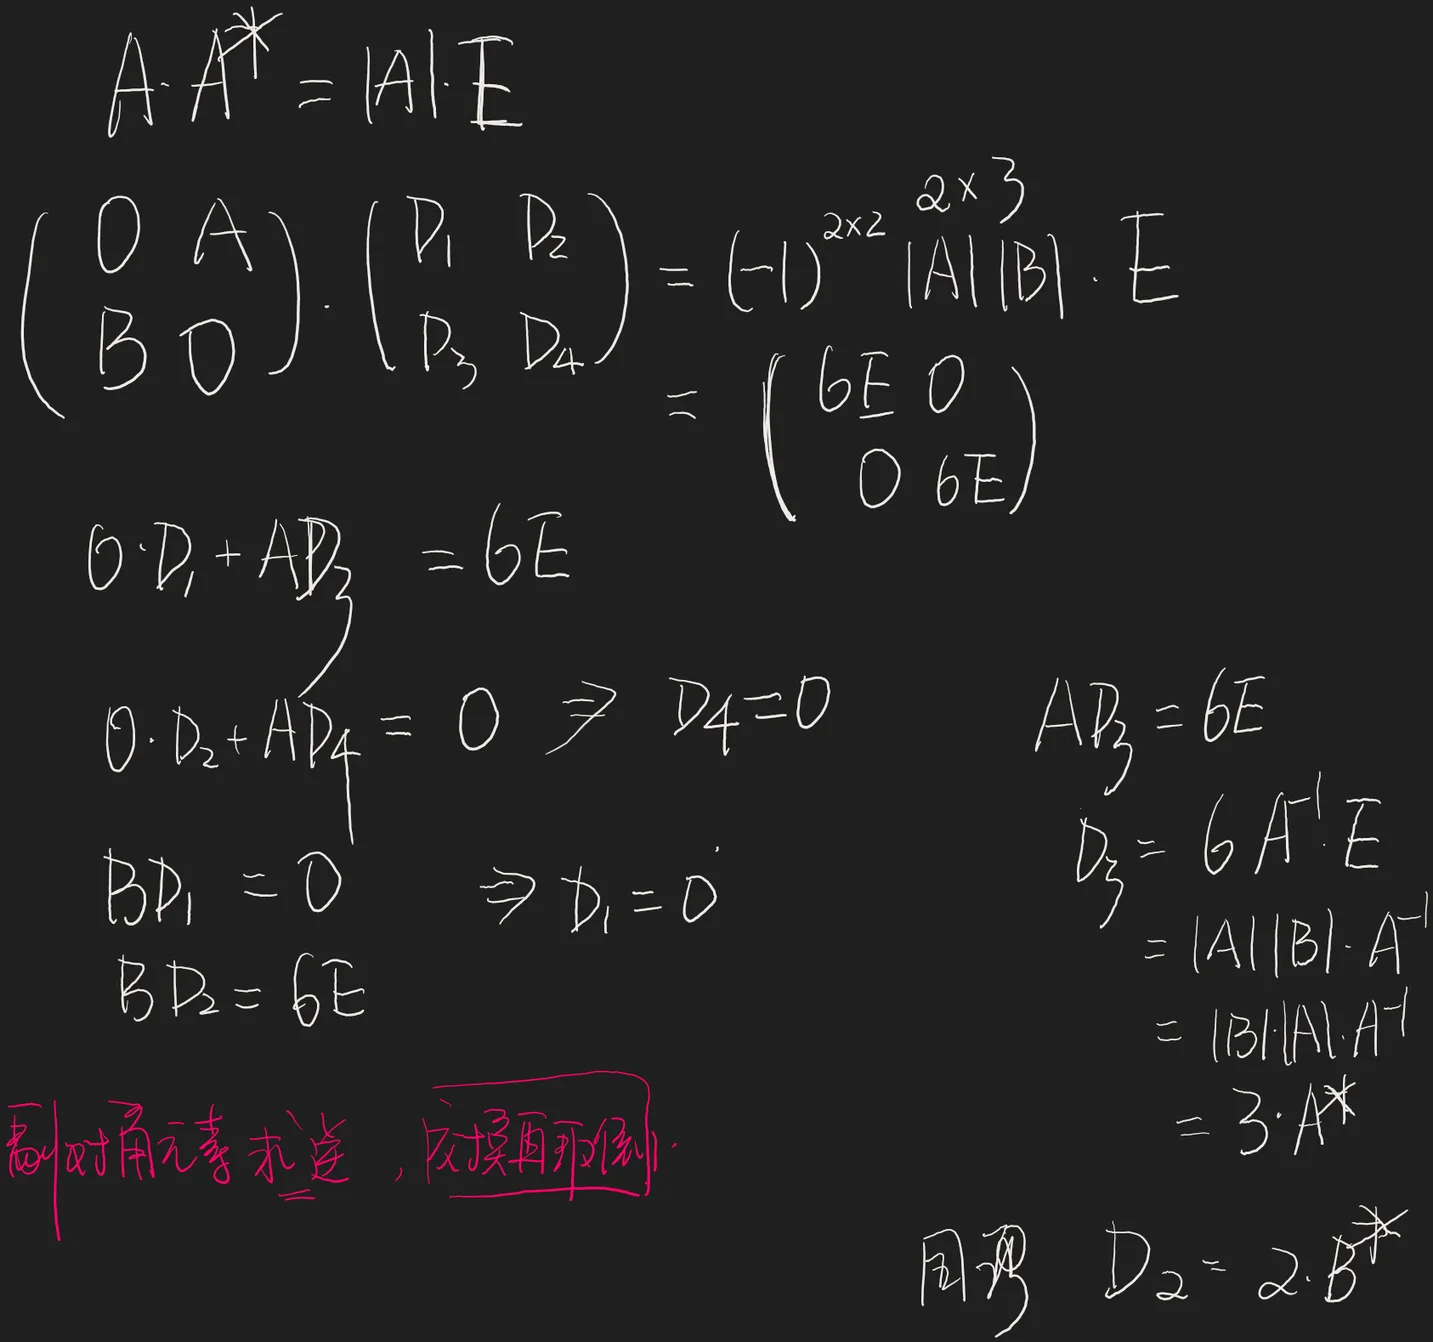 A·A* = |A|·E
( O A ; B O ) · ( D₁ D₂ ; D₃ D₄ ) = (-1)^{2×2} |A||B| · E
2×3
= ( 6E O ; O 6E )
O·D₁ + AD₃ = 6E
O·D₂ + AD₄ = O ⇒ D₄ = O
BD₁ = O ⇒ D₁ = O
BD₂ = 6E
AD₃ = 6E
D₃ = 6A⁻¹·E
= |A||B|·A⁻¹
= |B|·|A|·A⁻¹
= 3·A*
副对角元素求逆,交换再取倒.
同理 D₂ = 2·B*